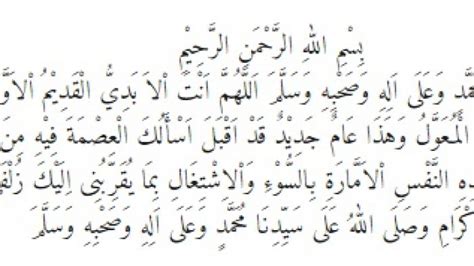 بِسْمِ اللهِ الرَّحْمَنِ الرَّحِيْمِ
وَعَلَى اٰلِهِ وَصَحْبِهِ وَسَلَّمَ اَللَّهُمَّ اَنْتَ اْلاَ بَدِيُّ الْقَدِيْمُ اْلاَوَّ
الْمُعَوَّلُ وَهَذَا عَامٌ جَدِيْدٌ قَدْ اَقْبَلَ اَسْأَلُكَ الْعِصْمَةَ فِيْهِ مِنَ
النَّفْسِ اْلاَمَّارَةِ بِالسُّوْءِ وَاْلاِشْتِغَالِ بِمَا يُقَرِّبُنِى اِلَيْكَ زُلْفَى
وَصَلَى اللهُ عَلَى سَيِّدِنَا مُحَمَّدٍ وَعَلَى اٰلِهِ وَصَحْبِهِ وَسَلَّمَ